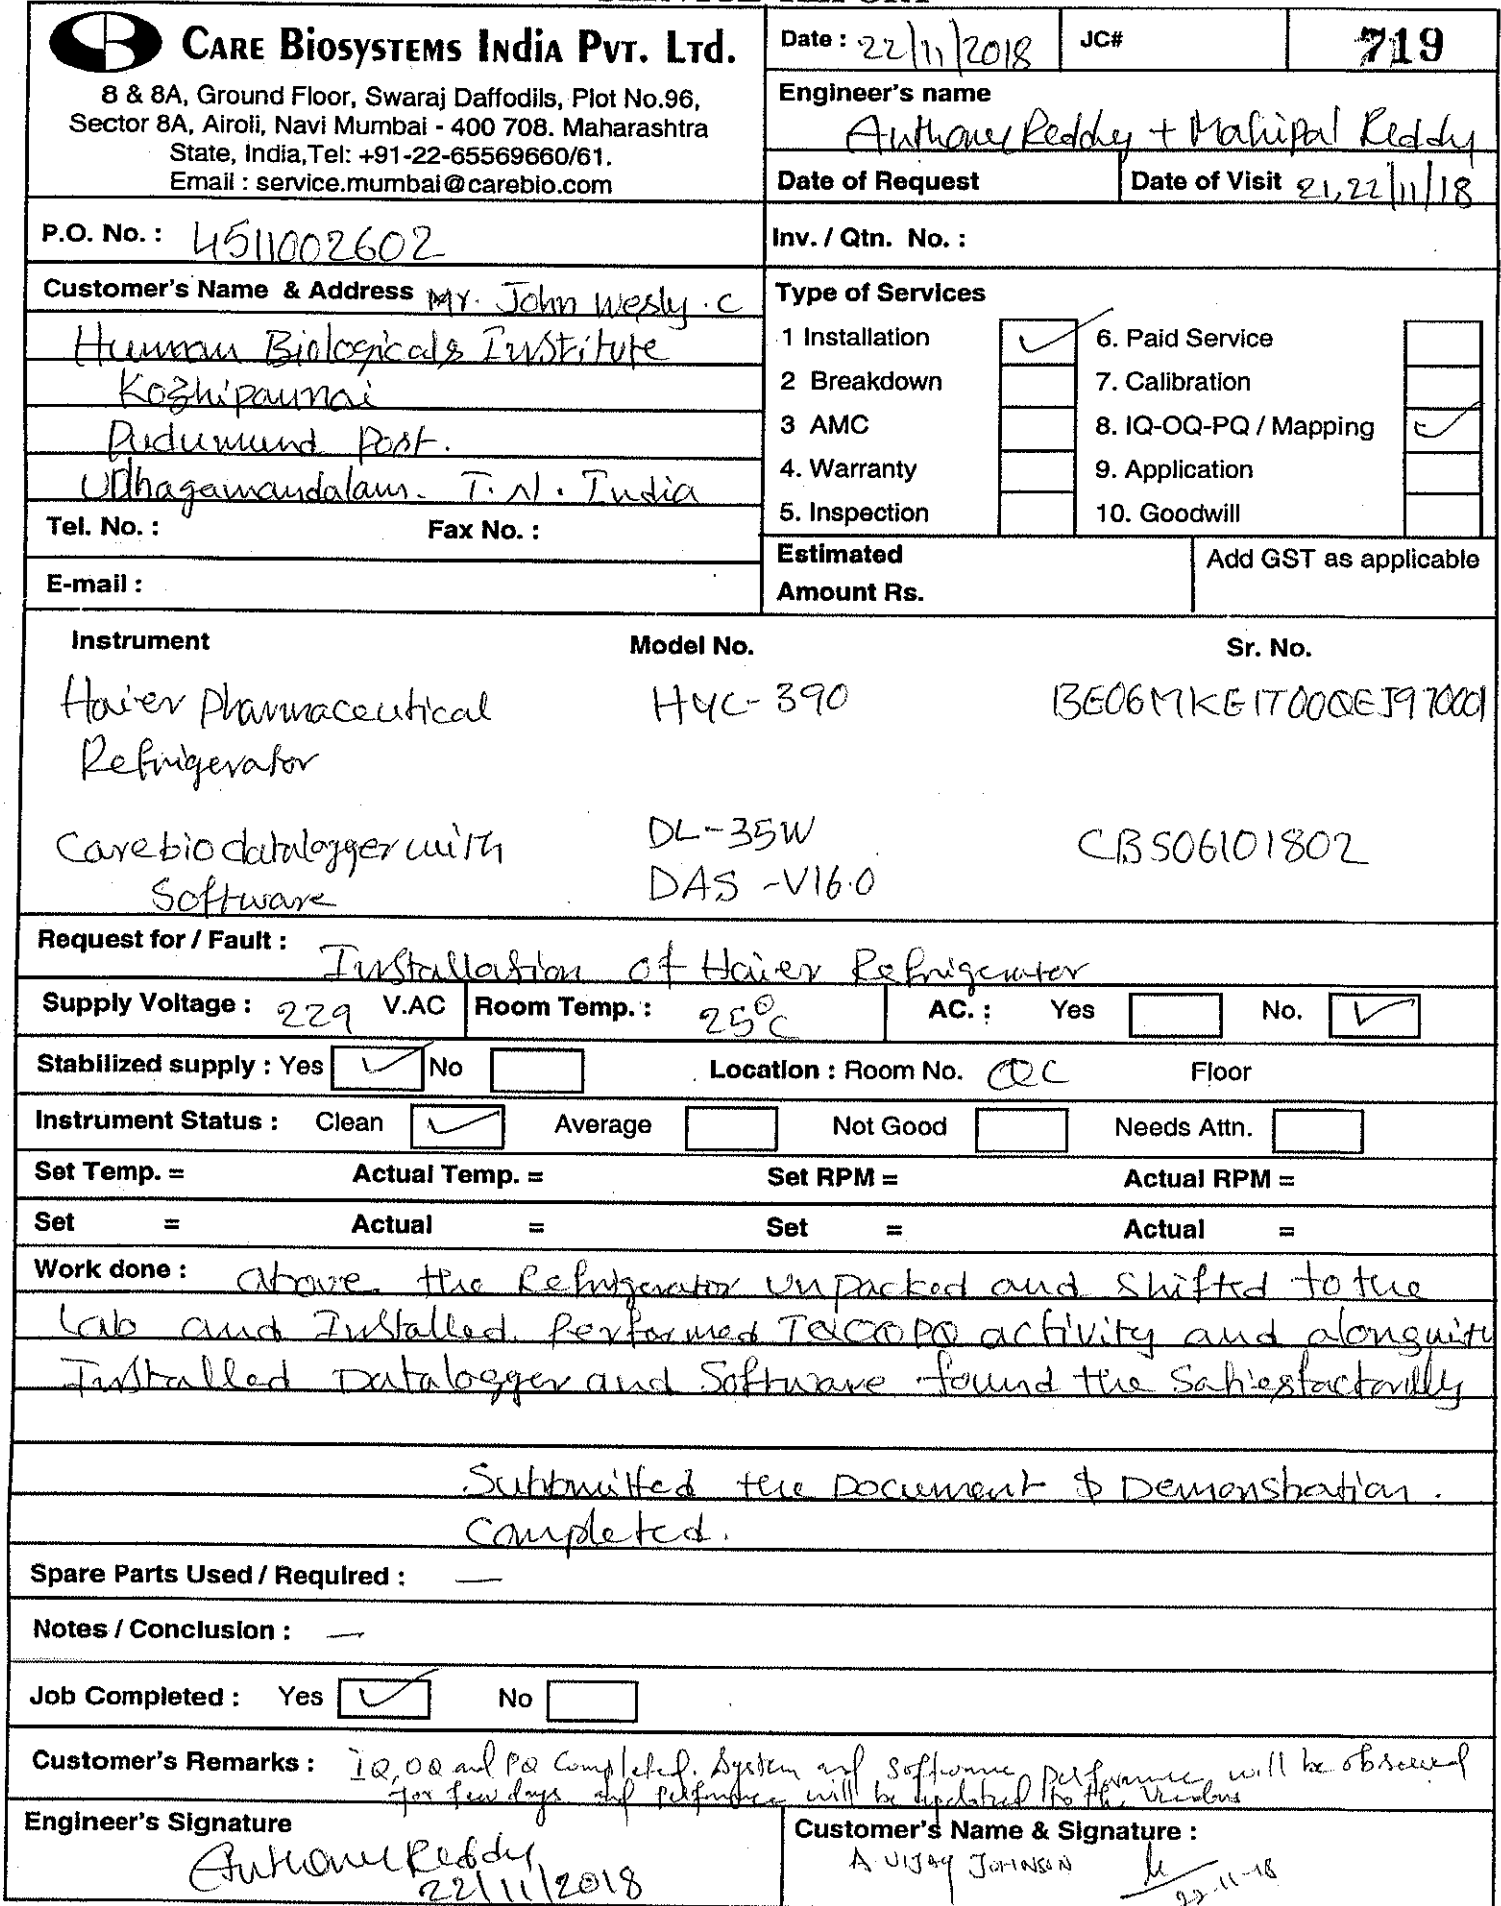 CARE BIOSYSTEMS INDIA PVT. LTD.
8 & 8A, Ground Floor, Swaraj Daffodils, Plot No.96,
Sector 8A, Airoli, Navi Mumbai - 400 708. Maharashtra
State, India,Tel: +91-22-65569660/61.
Email : service.mumbai@carebio.com
Date : 22/11/2018 JC# 719
Engineer's name
Anthony Reddy + Mahipal Reddy
Date of Request Date of Visit 21,22/11/18
P.O. No. : 4511002602
Inv. / Qtn. No. :
Customer's Name & Address Mr. John Wesly . C
Human Biologicals Institute
Kozhipannai
Pudumund Post.
Udhagamandalam. T.N. India
Tel. No. : Fax No. :
E-mail :
Type of Services
1 Installation ✓ 6. Paid Service
2 Breakdown 7. Calibration
3 AMC 8. IQ-OQ-PQ / Mapping ✓
4. Warranty 9. Application
5. Inspection 10. Goodwill
Estimated Add GST as applicable
Amount Rs.
Instrument Model No. Sr. No.
Haier Pharmaceutical HYC-390 BE06MKE1T00QEJ970001
Refrigerator
Carebio datalogger with DL-35W CBS06101802
Software DAS -V16.0
Request for / Fault : Installation of Haier Refrigerator
Supply Voltage : 229 V.AC Room Temp. : 25°C AC. : Yes No. ✓
Stabilized supply : Yes ✓ No Location : Room No. QC Floor
Instrument Status : Clean ✓ Average Not Good Needs Attn.
Set Temp. = Actual Temp. = Set RPM = Actual RPM =
Set = Actual = Set = Actual =
Work done : above the Refrigerator unpacked and shifted to the
Lab and Installed. Performed IQOQPQ activity and alongwith
Installed Datalogger and Software found the Satiesfactorilly
Submitted the Document & Demonstration.
Completed.
Spare Parts Used / Required : —
Notes / Conclusion : —
Job Completed : Yes ✓ No
Customer's Remarks : IQ, OQ and PQ Completed. System and software performance will be observed
for few days and performance will be updated to the Vendors
Engineer's Signature
Anthony Reddy
22/11/2018
Customer's Name & Signature :
A VIJAY JOHNSON
22-11-18